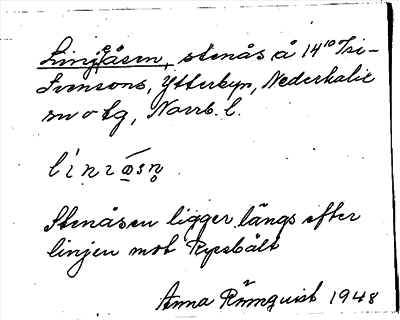 Linjeåsen, stenås å 14¹⁰ Isi-
Svensons, Ytterbyn, Nederkalix
sn o tg, Norrb. l.
Stenåsen ligger längs efter
linjen mot Ryssbält
Anna Römquist 1948